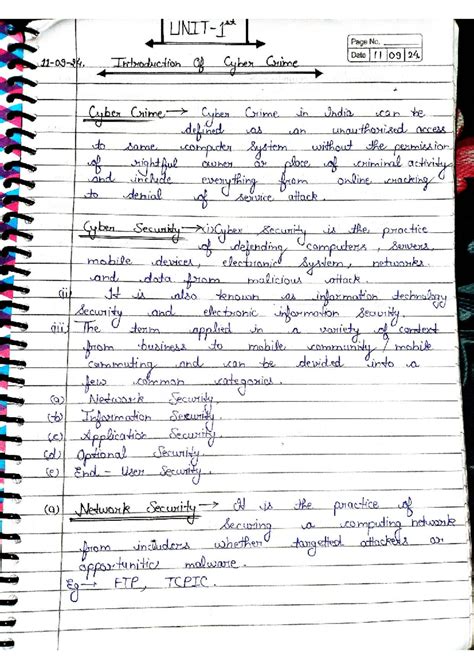 UNIT-1st
Page No.
Date 11 09 24
11-09-24. Introduction Of Cyber Crime
Cyber Crime → Cyber Crime in India can be
defined as an unauthorised access
to some computer System without the permission
of rightful owner or place of criminal activity
and include everything from online cracking
to denial of service attack.
Cyber Security → (i) Cyber Security is the practice
of defending computers, servers,
mobile devices, electronic System, networks
and data from malicious attack.
(ii) It is also known as information technology
Security and electronic information Security.
(iii) The term applied in a variety of context
from business to mobile community / mobile
commuting and can be devided into a
few common categories.
(a) Network Security.
(b) Information Security.
(c) Application Security.
(d) Optional Security.
(e) End - User Security.
(a) Network Security → It is the practice of
Securing a computing network
from includers whether targetted attackers or
opportunitic malware.
Eg → FTP, TCPIC.